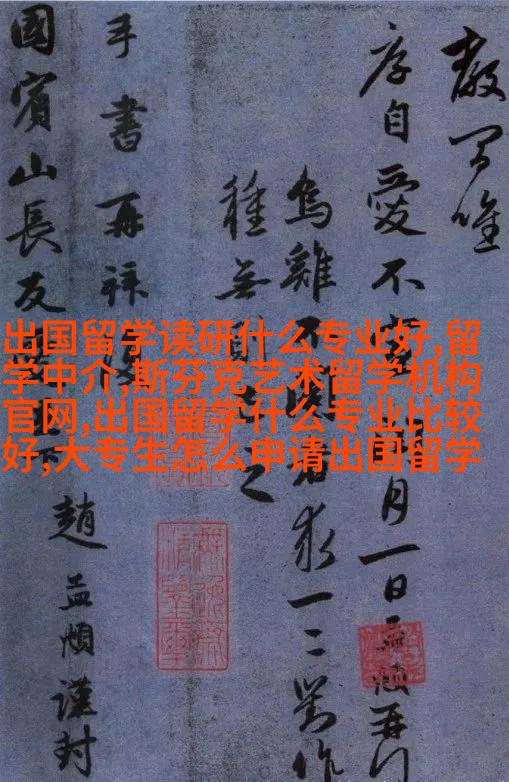 出国留学读研什么专业好,留
学中介,斯芬克艺术留学机构
官网,出国留学什么专业比较
好,大专生怎么申请出国留学
唯
序自愛不宣月一日孟頫再
烏雞不者求一二對作
種無之
手書再拜復
國賓山長友
趙孟頫謹封